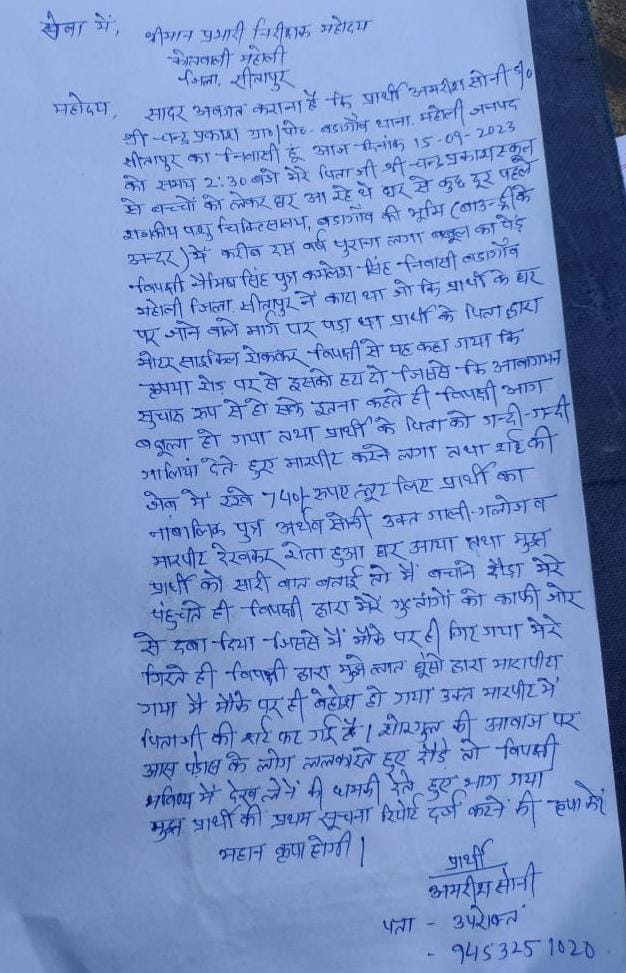 सेवा में,
श्रीमान प्रभारी निरीक्षक महोदय
कोतवाली महोली
जिला, सीतापुर
महोदय, सादर अवगत कराना है कि प्रार्थी अमरीश सोनी S/o
श्री चन्द्र प्रकाश ग्रा०/पो०- बडागाँव थाना. महोली जनपद
सीतापुर का निवासी हूं आज दिनांक 15-09-2023
को समय 2:30 बजे मेरे पिता जी श्री चन्द्र प्रकाश स्कूल
से बच्चों को लेकर घर आ रहे थे घर से कुछ दूर पहले
राजकीय पशु चिकित्सालय, बडागाँव की भूमि (बाउन्ड्री के
अन्दर) में करीब दस वर्ष पुराना लगा बबूल का पेड़
विपक्षी नैमिष सिंह पुत्र कमलेश सिंह निवासी बडागाँव
महोली जिला सीतापुर ने काटा था जो कि प्रार्थी के घर
पर जाने वाले मार्ग पर पड़ा था प्रार्थी के पिता द्वारा
मोटर साइकिल रोककर विपक्षी से यह कहा गया कि
कृपया रोड पर से इसको हटा दो जिससे कि आवागमन
सुचारू रूप से हो सके इतना कहते ही विपक्षी आग
बबूला हो गया तथा प्रार्थी के पिता को गन्दी-गन्दी
गालियां देते हुए मारपीट करने लगा तथा शर्ट की
जेब में रखे 740/- रूपए लूट लिए प्रार्थी का
नाबालिक पुत्र अर्थव सोनी उक्त गाली-गलौज व
मारपीट देखकर रोता हुआ घर आया तथा मुझ
प्रार्थी को सारी बात बताई तो मैं बचाने दौडा मेरे
पंहुचते ही विपक्षी द्वारा मेरे गुप्तांगों को काफी जोर
से दबा दिया जिससे मैं मौके पर ही गिर गया मेरे
गिरते ही विपक्षी द्वारा मुझे लात घूंसो द्वारा मारापीटा
गया मैं मौके पर ही बेहोश हो गया उक्त मारपीट में
पिताजी की शर्ट फट गई है। शोरगुल की आवाज पर
आस पडोस के लोग ललकारते हुए दौडे तो विपक्षी
भविष्य में देख लेने की धमकी देते हुए भाग गया
मुझ प्रार्थी की प्रथम सूचना रिपोर्ट दर्ज करने की कृपा करें
महान कृपा होगी।
प्रार्थी
अमरीश सोनी
पता - उपरोक्त
- 9453251020